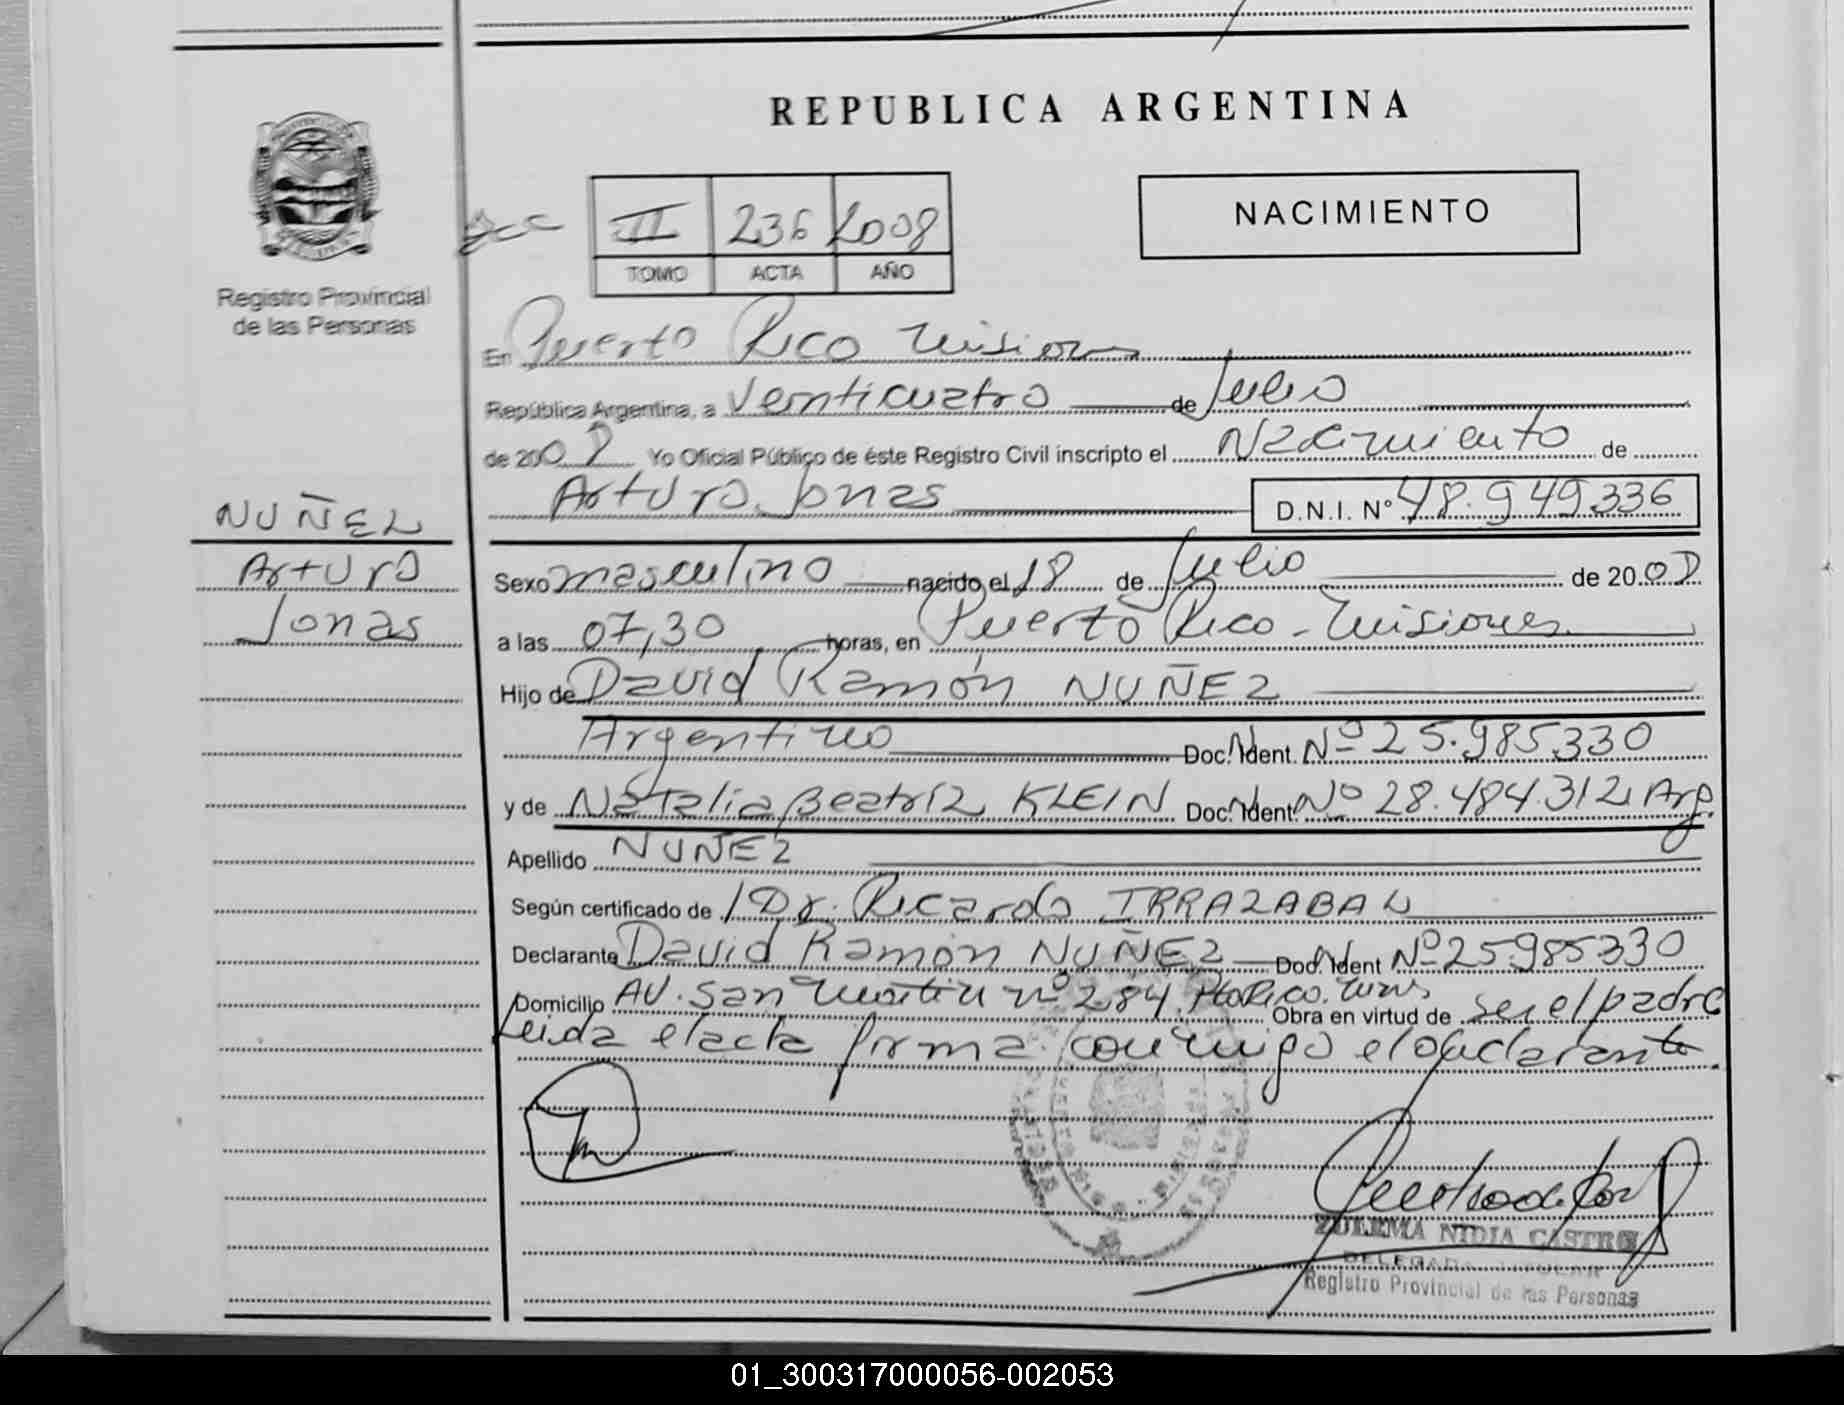 REPUBLICA ARGENTINA
II 236 2008
TOMO ACTA AÑO
NACIMIENTO
Registro Provincial
de las Personas
En Puerto Rico Misiones
República Argentina, a Veinticuatro de Julio
de 2008 Yo Oficial Público de éste Registro Civil inscripto el Nacimiento de
Arturo Jonas D.N.I. Nº 48.949.336
NUÑEZ
Arturo
Jonas
Sexo masculino nacido el 18 de Julio de 2008
a las 07,30 horas, en Puerto Rico - Misiones
Hijo de David Ramón NUÑEZ
Argentino Doc. Ident. Nº 25.985.330
y de Natalia Beatriz KLEIN Doc. Ident. Nº 28.484.312 Arg.
Apellido NUÑEZ
Según certificado de Dr. Ricardo IRRAZABAL
Declarante David Ramón NUÑEZ Doc. Ident Nº 25.985.330
Domicilio AV. San Martin nº 284. Pto Rico. Mnes Obra en virtud de ser el padre
Leida el acta firma conmigo el declarante.
ZULEMA NIDIA CASTRO
DELEGADA TITULAR
Registro Provincial de las Personas
01_300317000056-002053